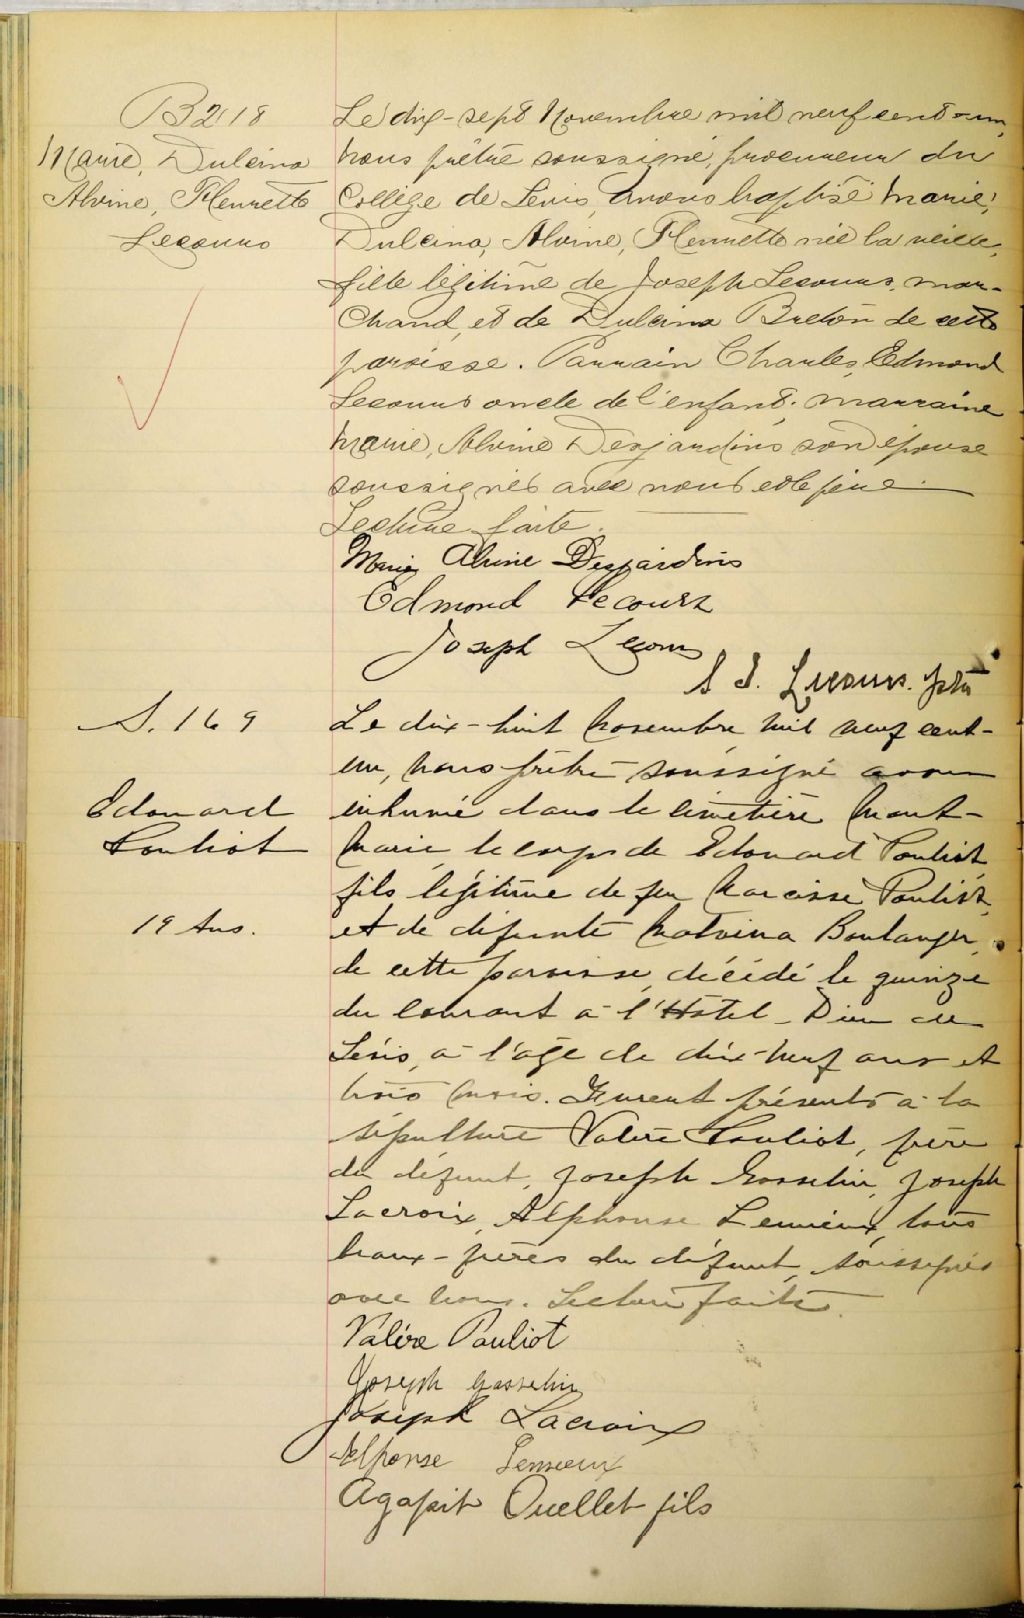 B218
Marie, Dulcina
Alvine, Henriette
Lecours
Le dix-sept Novembre mil neuf cent-un,
nous prêtre soussigné, procureur du
Collège de Levis, avons baptisé Marie,
Dulcina, Alvine, Henriette née la veille,
fille légitime de Joseph Lecours, mar-
chand, et de Dulcina Breton de cette
paroisse. Parrain Charles, Edmond
Lecours oncle de l'enfant; marraine
Marie, Alvine Desjardins son épouse
soussignés avec nous et le père.
Lecture faite.
Marie Alvine Desjardins
Edmond Lecours
Joseph Lecours
S. J. Lecours. ptre
S. 169
Edouard
Pouliot
19 Ans.
Le dix-huit Novembre, mil neuf cent-
un, nous prêtre soussigné avons
inhumé dans le cimetière Mont-
Marie, le corps de Edouard Pouliot,
fils légitime de feu Narcisse Pouliot,
et de défunte Malvina Boulanger,
de cette paroisse, décédé le quinze
du courant à l'Hôtel-Dieu de
Lévis, à l'âge de dix-neuf ans et
trois mois. Furent présents à la
sépulture Valère Pouliot, frère
du défunt, Joseph Gosselin, Joseph
Lacroix, Alphonse Lemieux, tous
beaux-frères du défunt, soussignés
avec nous. Lecture faite.
Valère Pouliot
Joseph Gosselin
Joseph Lacroix
Alphonse Lemieux
Agapit Ouellet fils